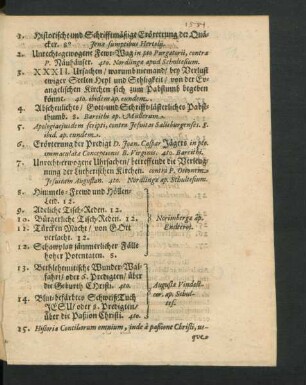 1. Historische und Schrifftmäßige Erörterung der Quä-
cker. 8. Jenæ sumptibus Hertelij.
2. Unrechtgewogene Fewr-Wag in pto Purgatorij, contra
P. Neuhäuser. 4to. Nordlingæ apud Schultesium.
3. XXXII. Ursachen / warumb niemand / bey Verlust
ewiger Seelen Heyl und Seligkeit / von der Ev-
angelischen Kirchen sich zum Pabstumb begeben
könne. 4to. ibidem ap. eundem.
4. Abscheuliches / Gott- und Schrifftlästerliches Pabst-
thumb. 8. ap.
5. Apologia ejusdem scripti, contra Jesuitas Salisburgenses. 8.
ibid. ap. eundem.
6. Erörterung der Predigt D. Joan. Caspar Jägers in pto
immaculatæ Conceptionis B. Virginis. 4to.
7. Unrechterwogene Ursachen / betreffende die Verjeug-
nung der Lutherischen Kirchen. contra P.
Jesuitam Augustan. 4to. Nordlingæ ap. Schultesium.
8. Himmels-Freud und Höllen-
Leid. 12.
9. Adeliche Tisch-Reden. 12.
10. Bürgerliche Tisch-Reden. 12.
11. Türcken Macht / von Gott
verlacht. 12.
12. Schauplatz jämmerlicher Fälle
hoher Potentaten. 8.
Norimbergæ ap.
Endteros.
13. Bethlehemitische Wunder Wal-
fahrt / oder 6. Predigten / über
die Geburth Christi. 4to.
14. Blut-befärbtes Schweiß-Tuch
JESU / oder 8. Predigten /
über die Paßion Christi. 4to.
Augustæ Vindeli-
cor. ap.
15. Historia Conciliorum omnium, inde à passione Christi, us-
que